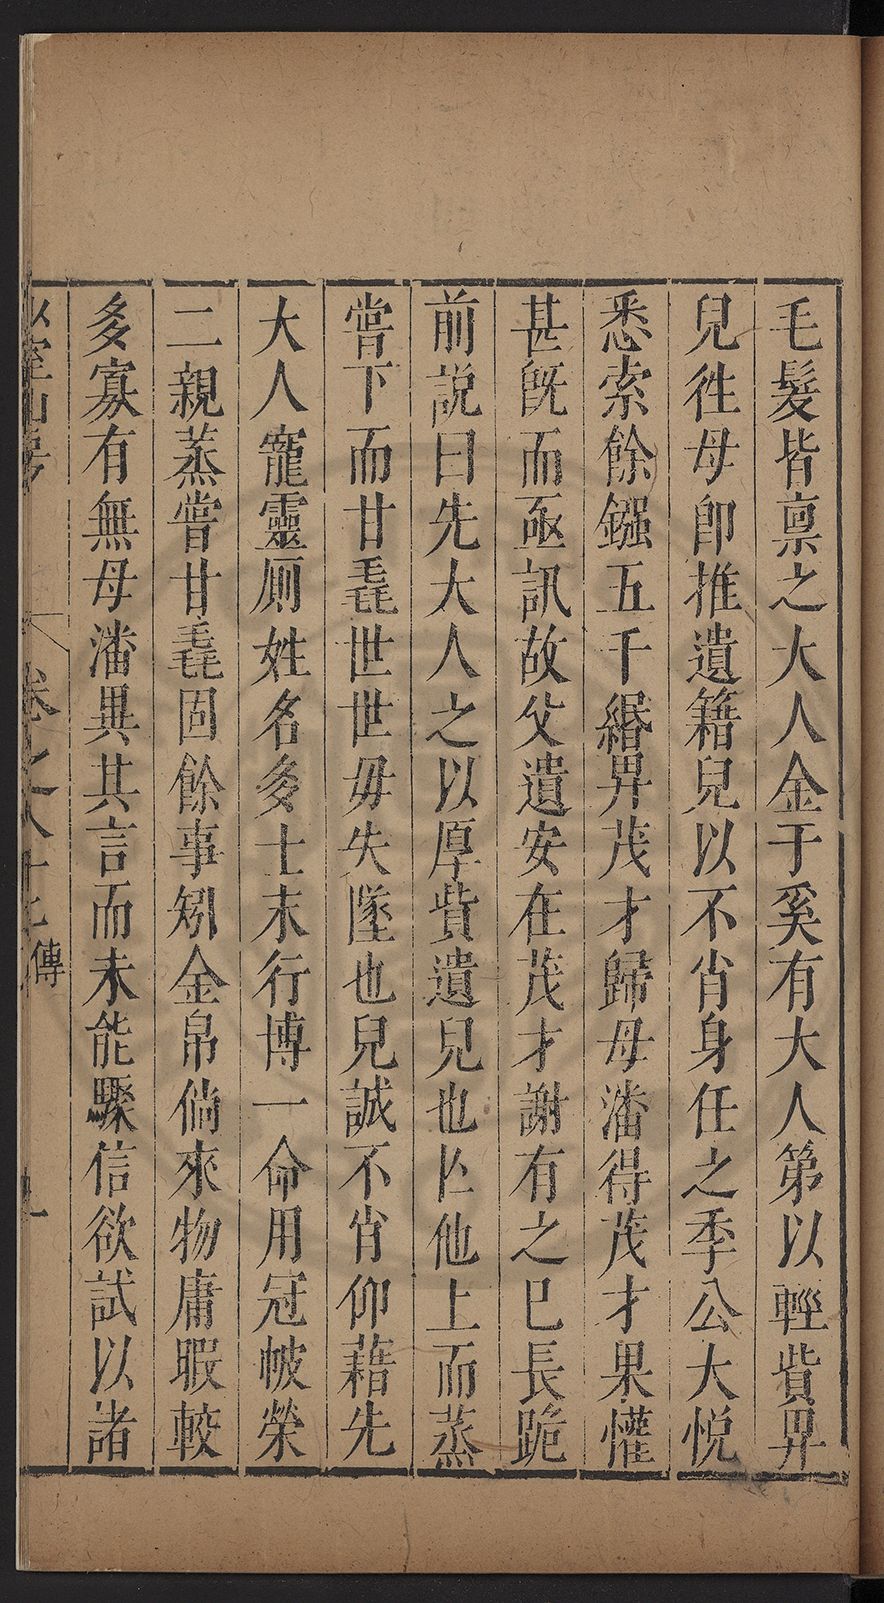 毛髮皆禀之大人金于奚有大人第以輕貲畀
兒徃母卽推遺籍兒以不肖身任之季公大悅
悉索餘鏹五千緡畀茂才歸母潘得茂才果懽
甚旣而亟訊故父遺安在茂才謝有之巳長跪
前説曰先大人之以厚貲遺兒也匪他上而蒸
嘗下而甘毳世世毋失墜也兒誠不肖仰藉先
大人寵靈厠姓名多士末行博一命用冠帔榮
二親蒸嘗甘毳固餘事矧金帛倘來物庸暇較
多寡有無母潘異其言而未能驟信欲試以諸
室山房
卷之八十
傳